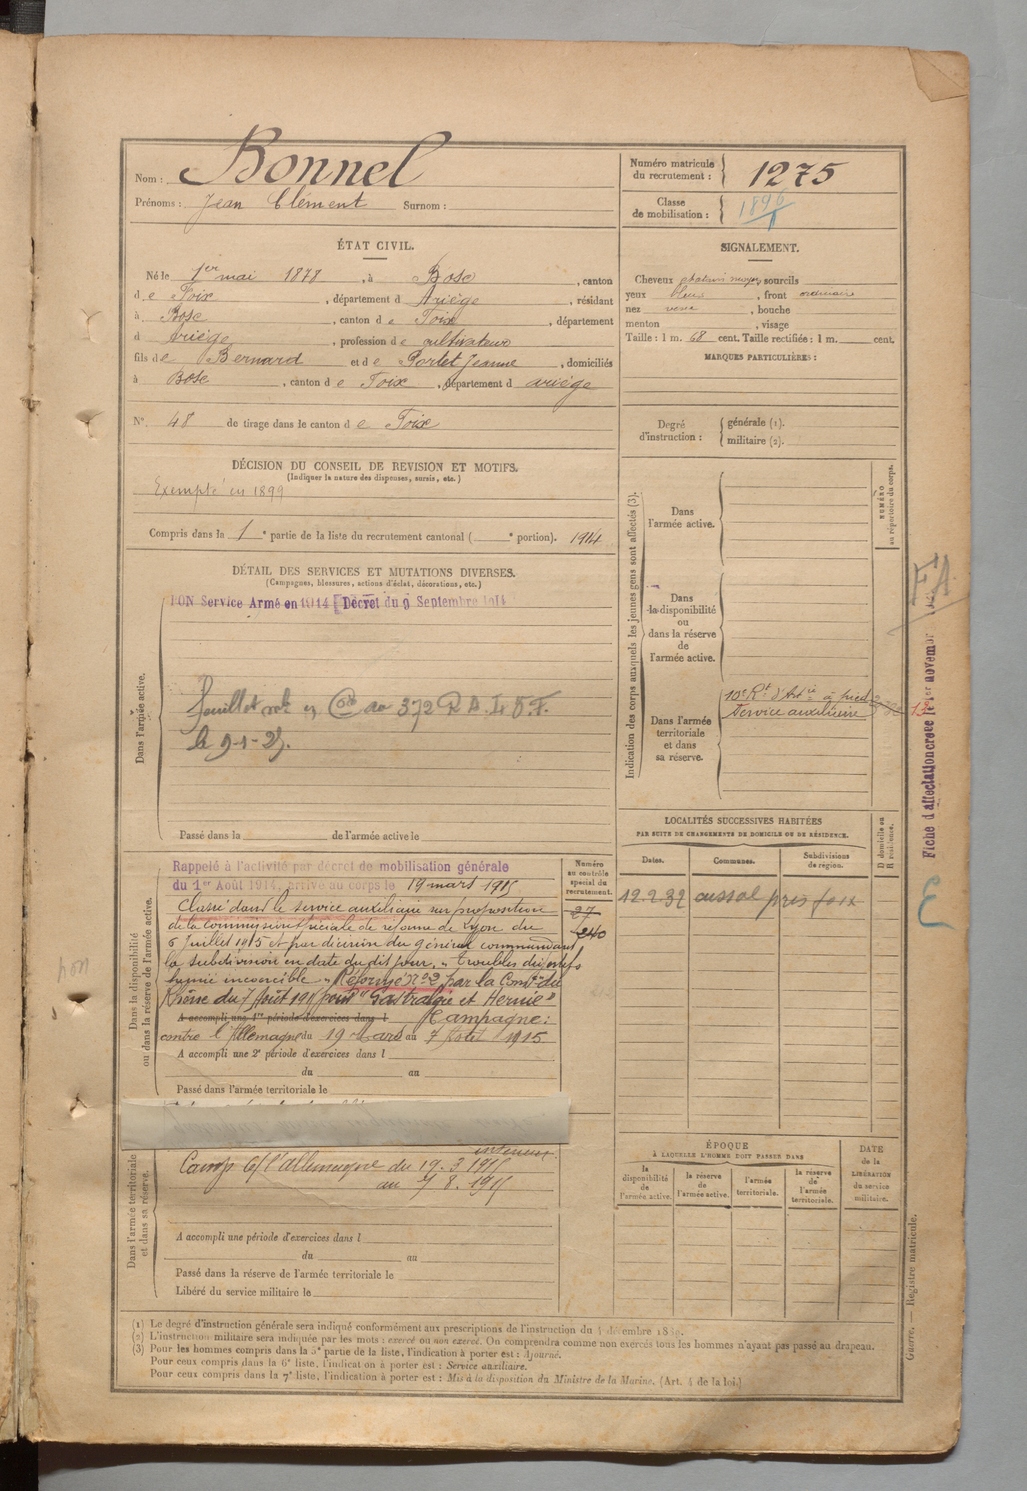 Nom : Bonnel
Prénoms : Jean Clément Surnom :
Numéro matricule
du recrutement : 1275
Classe
de mobilisation : 1896
ÉTAT CIVIL.
Né le 1er mai 1878, à Bosc, canton
de Foix, département d Ariège, résidant
à Bosc, canton de Foix, département
d Ariège, profession de cultivateur
fils de Bernard et de Portet Jeanne, domiciliés
à Bosc, canton de Foix, département d ariège
N° 48 de tirage dans le canton de Foix
SIGNALEMENT.
Cheveux chatain moyen, sourcils
yeux bleus, front ordinaire
nez, bouche
menton, visage
Taille : 1 m. 68 cent. Taille rectifiée : 1 m. cent.
MARQUES PARTICULIÈRES :
Degré
d'instruction :
générale (1).
militaire (2).
DÉCISION DU CONSEIL DE REVISION ET MOTIFS.
(Indiquer la nature des dispenses, sursis, etc.)
Exempté en 1899
Compris dans la 1e partie de la liste du recrutement cantonal ( e portion). 1914
DÉTAIL DES SERVICES ET MUTATIONS DIVERSES.
(Campagnes, blessures, actions d'éclat, décorations, etc.)
BON Service Armé en 1914 [Décret du 9 Septembre 1914
Dans l'armée active.
feuillet
372
le 9-1-
Passé dans la de l'armée active le
Indication des corps auxquels les jeunes gens sont affectés (3).
NUMÉRO
au répertoire du corps.
Dans
l'armée active.
Dans
la disponibilité
ou
dans la réserve
de
l'armée active.
Dans l'armée
territoriale
et dans
sa réserve.
10e Rt d'Artie à pied
Service auxiliaire
LOCALITÉS SUCCESSIVES HABITÉES
PAR SUITE DE CHANGEMENTS DE DOMICILE OU DE RÉSIDENCE.
Dates. Communes. Subdivisions
de région.
D domicile ou
R résidence.
12.2.32 cussol près foix
Dans la disponibilité
ou dans la réserve de l'armée active.
Rappelé à l'activité par décret de mobilisation générale
du 1er Août 1914. Arrivé au corps le 19 mars 1915
Classé dans le service auxiliaire sur proposition
de la commission spéciale de réforme de Lyon du
6 juillet 1915 et par décision du général commandant
la subdivision en date du dit jour, "troubles digestifs
hernie incoercible" Réformé N°2 par la Comon du
Rhône du 7 Août 1915 pour "Gastralgie et Hernie"
A accompli une 1re période d'exercices dans l Campagne:
contre l'Allemagne du 19 Mars au 7 Août 1915
A accompli une 2e période d'exercices dans l
du au
Passé dans l'armée territoriale le
Numéro
au contrôle
spécial du
recrutement.
27
240
non
Dans l'armée territoriale
et dans sa réserve.
intérieur
Camp c/ l'allemagne du 19.3.1915
au 7.8.1915
A accompli une période d'exercices dans l
du au
Passé dans la réserve de l'armée territoriale le
Libéré du service militaire le
ÉPOQUE
À LAQUELLE L'HOMME DOIT PASSER DANS
la
disponibilité
de
l'armée active.
la réserve
de
l'armée active.
l'armée
territoriale.
la réserve
de
l'armée
territoriale.
DATE
de la
LIBÉRATION
du service
militaire.
(1) Le degré d'instruction générale sera indiqué conformément aux prescriptions de l'instruction du 4 décembre 1889.
(2) L'instruction militaire sera indiquée par les mots : exercé ou non exercé. On comprendra comme non exercés tous les hommes n'ayant pas passé au drapeau.
(3) Pour les hommes compris dans la 5e partie de la liste, l'indication à porter est : Ajourné.
Pour ceux compris dans la 6e liste, l'indication à porter est : Service auxiliaire.
Pour ceux compris dans la 7e liste, l'indication à porter est : Mis à la disposition du Ministre de la Marine. (Art. 4 de la loi.)
Guerre. — Registre matricule.
FA
Fiche d'affectation créée le 1er novem